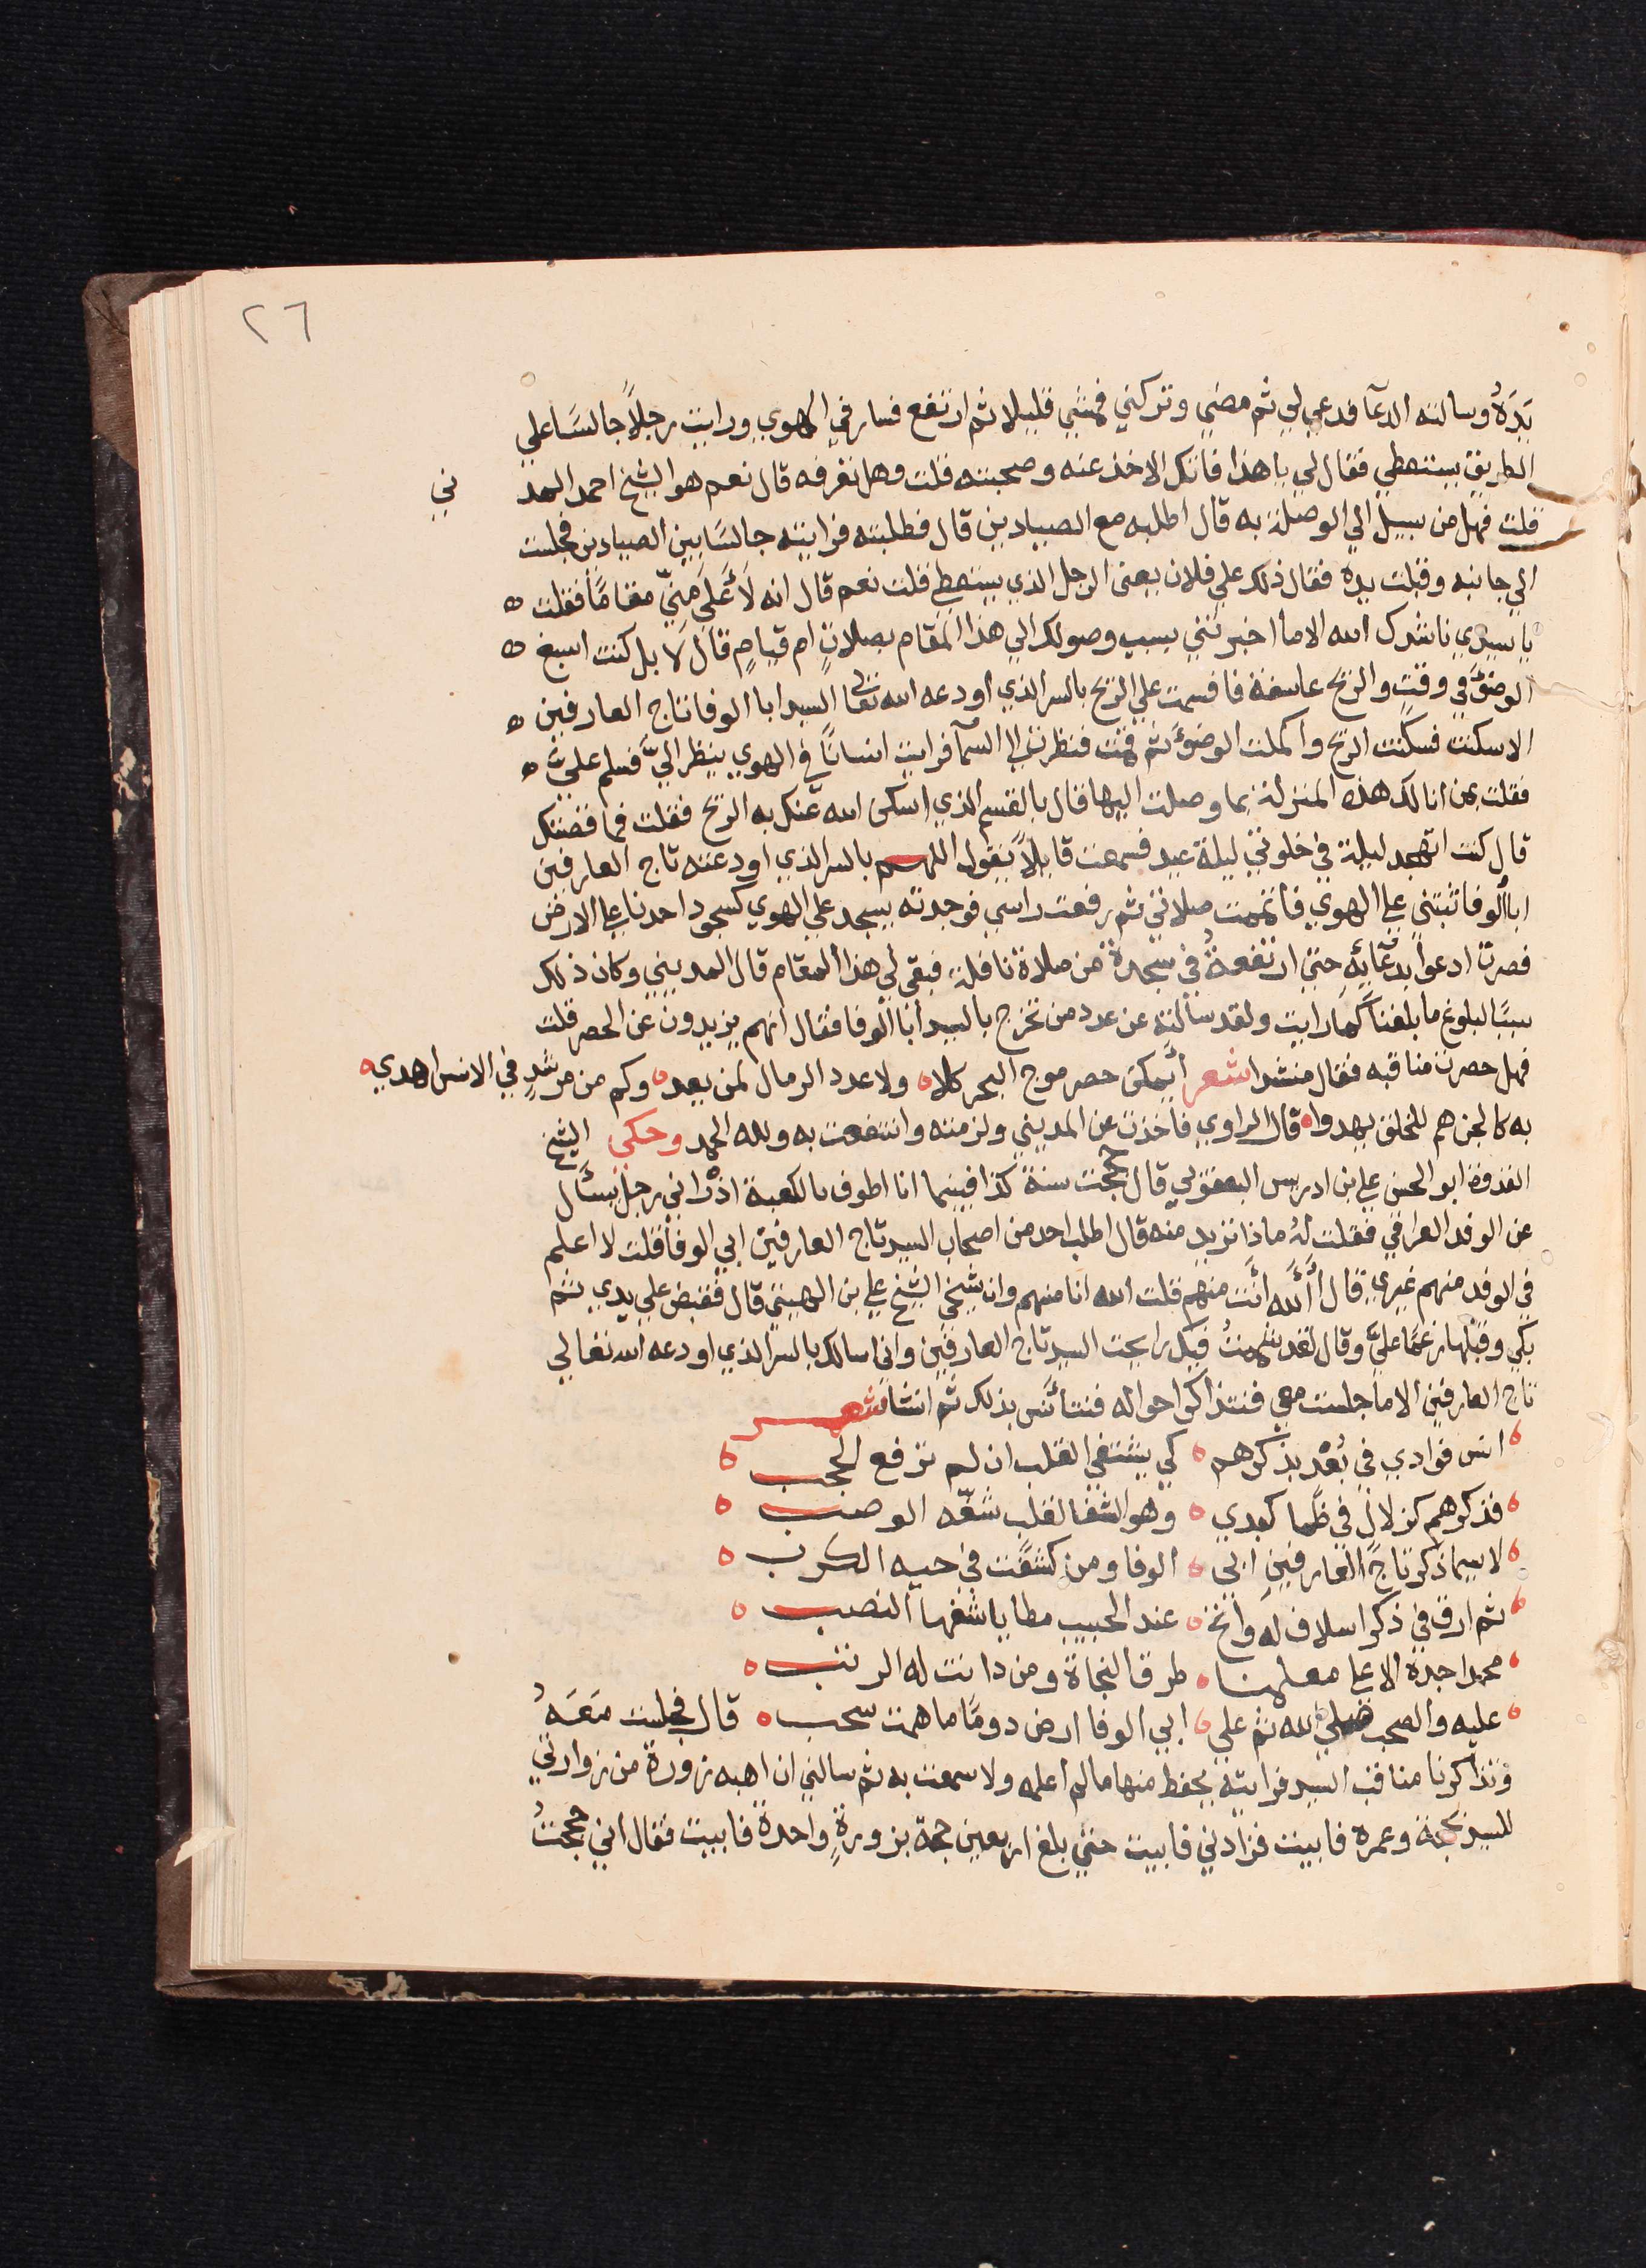 ٢٦
يَدَهُ وسالته الدعآ فدعي لي ثم مضي وتركني فمشي قليلا ثم ارتفع فسار في الهوي ورايت رجلاً جالسًا علي
الطريق يستعطي فقال لي يا هذا فاتك الاخذ عنه وصحبته قلت وهل تعرفه قال نعم هو الشيخ احمد المديني
قلت فهل من سبيل الي الوصلة به قال اطلبه مع الصيادين قال فطلبته فرايته جالسًا بين الصيادين فجلست
الي جانبه وقبلت يده فقال ذلك علي فلان يعني الرجل الذي يستعطي قلت نعم قال انه لاَعَلَي مِنيّ مقامًا فقلت
يا سيدي ناشدتك الله الاما اخبرتني بسبب وصولك الي هذا المقام بصلاةٍ ام قيامٍ قال لا بل كنت اسبغ
الوضؤَ في وقتٍ والريح عاصفة فاقسمت علي الريح بالسر الذي اودعه الله تعالى السيد ابا الوفا تاج العارفين
الا سكنت فسكنت الريح واكملت الوضؤَ ثم قمت فنظرت الي السمآ فرايت انسانًا في الهوي ينظر اليَّ فسلم عليَّ
فقلت بمن انا لك هذه المنزلة بما وصلت اليها قال بالقسم الذي اسكن الله عنك به الريح فقلت فما قصتك
قال كنت اتهجد ليلة في خلوتي ليلة عيد فسمعت قايلاً يقول اللهم بالسر الذي اودعته تاج العارفين
ابا الوفا ثبتني علي الهوي فاتممت صلاتي ثم رفعت راسي فوجدته يسجد علي الهوي كسجود احدنا علي الارض
فصرت ادعوا بدعَّايهِ حتي ارتفعتُ في سجدة من صلاة نافلة فبقي لي هذا المقام قال المديني وكان ذلك
سببًا لبلوغ ما بلغنا كما رايت ولقد سالته عن عدد من تخرج بالسيد ابا الوفا فقال انهم يزيدون عن الحصر قلت
فهل حصرت مناقبه فقال منشدا شعر أيمكن حصر موج البحر كلا ولا عدد الرمال لمن يعد وكم من مرشدٍ في الانس اهدي
به كالجن هم للخلق يهدوا قال الراوي فاخذت عن المديني ولزمته وانتفعت به ولله الحمد وحكي الشيخ
القدوة ابو الحسن علي بن ادريس اليعقوبي قال حججت سنة كذا فبينما انا اطوف بالكعبة اذ راني رجل يسأل
عن الوفد العراقي فقلت لهُ ماذا تريد منه قال اطلب احد من اصحاب السيد تاج العارفين ابي الوفا قلت لا اعلم
في الوفد منهم غيري قال أَاَلله أَنت منهم قلت الله انا منهم وان شيخي الشيخ علي بن الهيتي قال فقبض علي يدي ثم
بكي وقبلها رغمًا عليَّ وقال لقد شممتُ فيك رايحت السيد تاج العارفين واني اسالك بالسر الذي اودعه الله تعالي
تاج العارفين الاما جلست معي فنتذاكر احواله فنتأنس بذلك ثم انشا شعر
انس فوادي في بُعْد بذكرهم كي يشتفي القلب ان لم ترفع الحجب
فذكرهم كزلال في ظما كبدي وهو الشفا لقلب شفّه الوصب
لاسيما ذكر تاج العارفين ابي الوفا ومن كشفت في حيه الكرب
ثم ارق في ذكر اسلاف له وأنخ عند الحبيب مطايا شفها النصب
محمدا جده الاعلي معلمنا طرق النجاة ومن دانت له الرتب
عليه والصحب صلي الله ثم علي ابي الوفا ارض دومًا ما همت سحب قال فجلست معَهُ
وتذاكرنا مناقب السيد فرايته يحفظ منها ما لم اعلمه ولا سمعت به ثم سالني ان اهبه زورة من زوارتي
للسيد بحجة وعمرة فابيت فزادني فابيت حتي بلغ اربعين حجة بزورةٍ واحدة فابيت فقال اني حججتُ